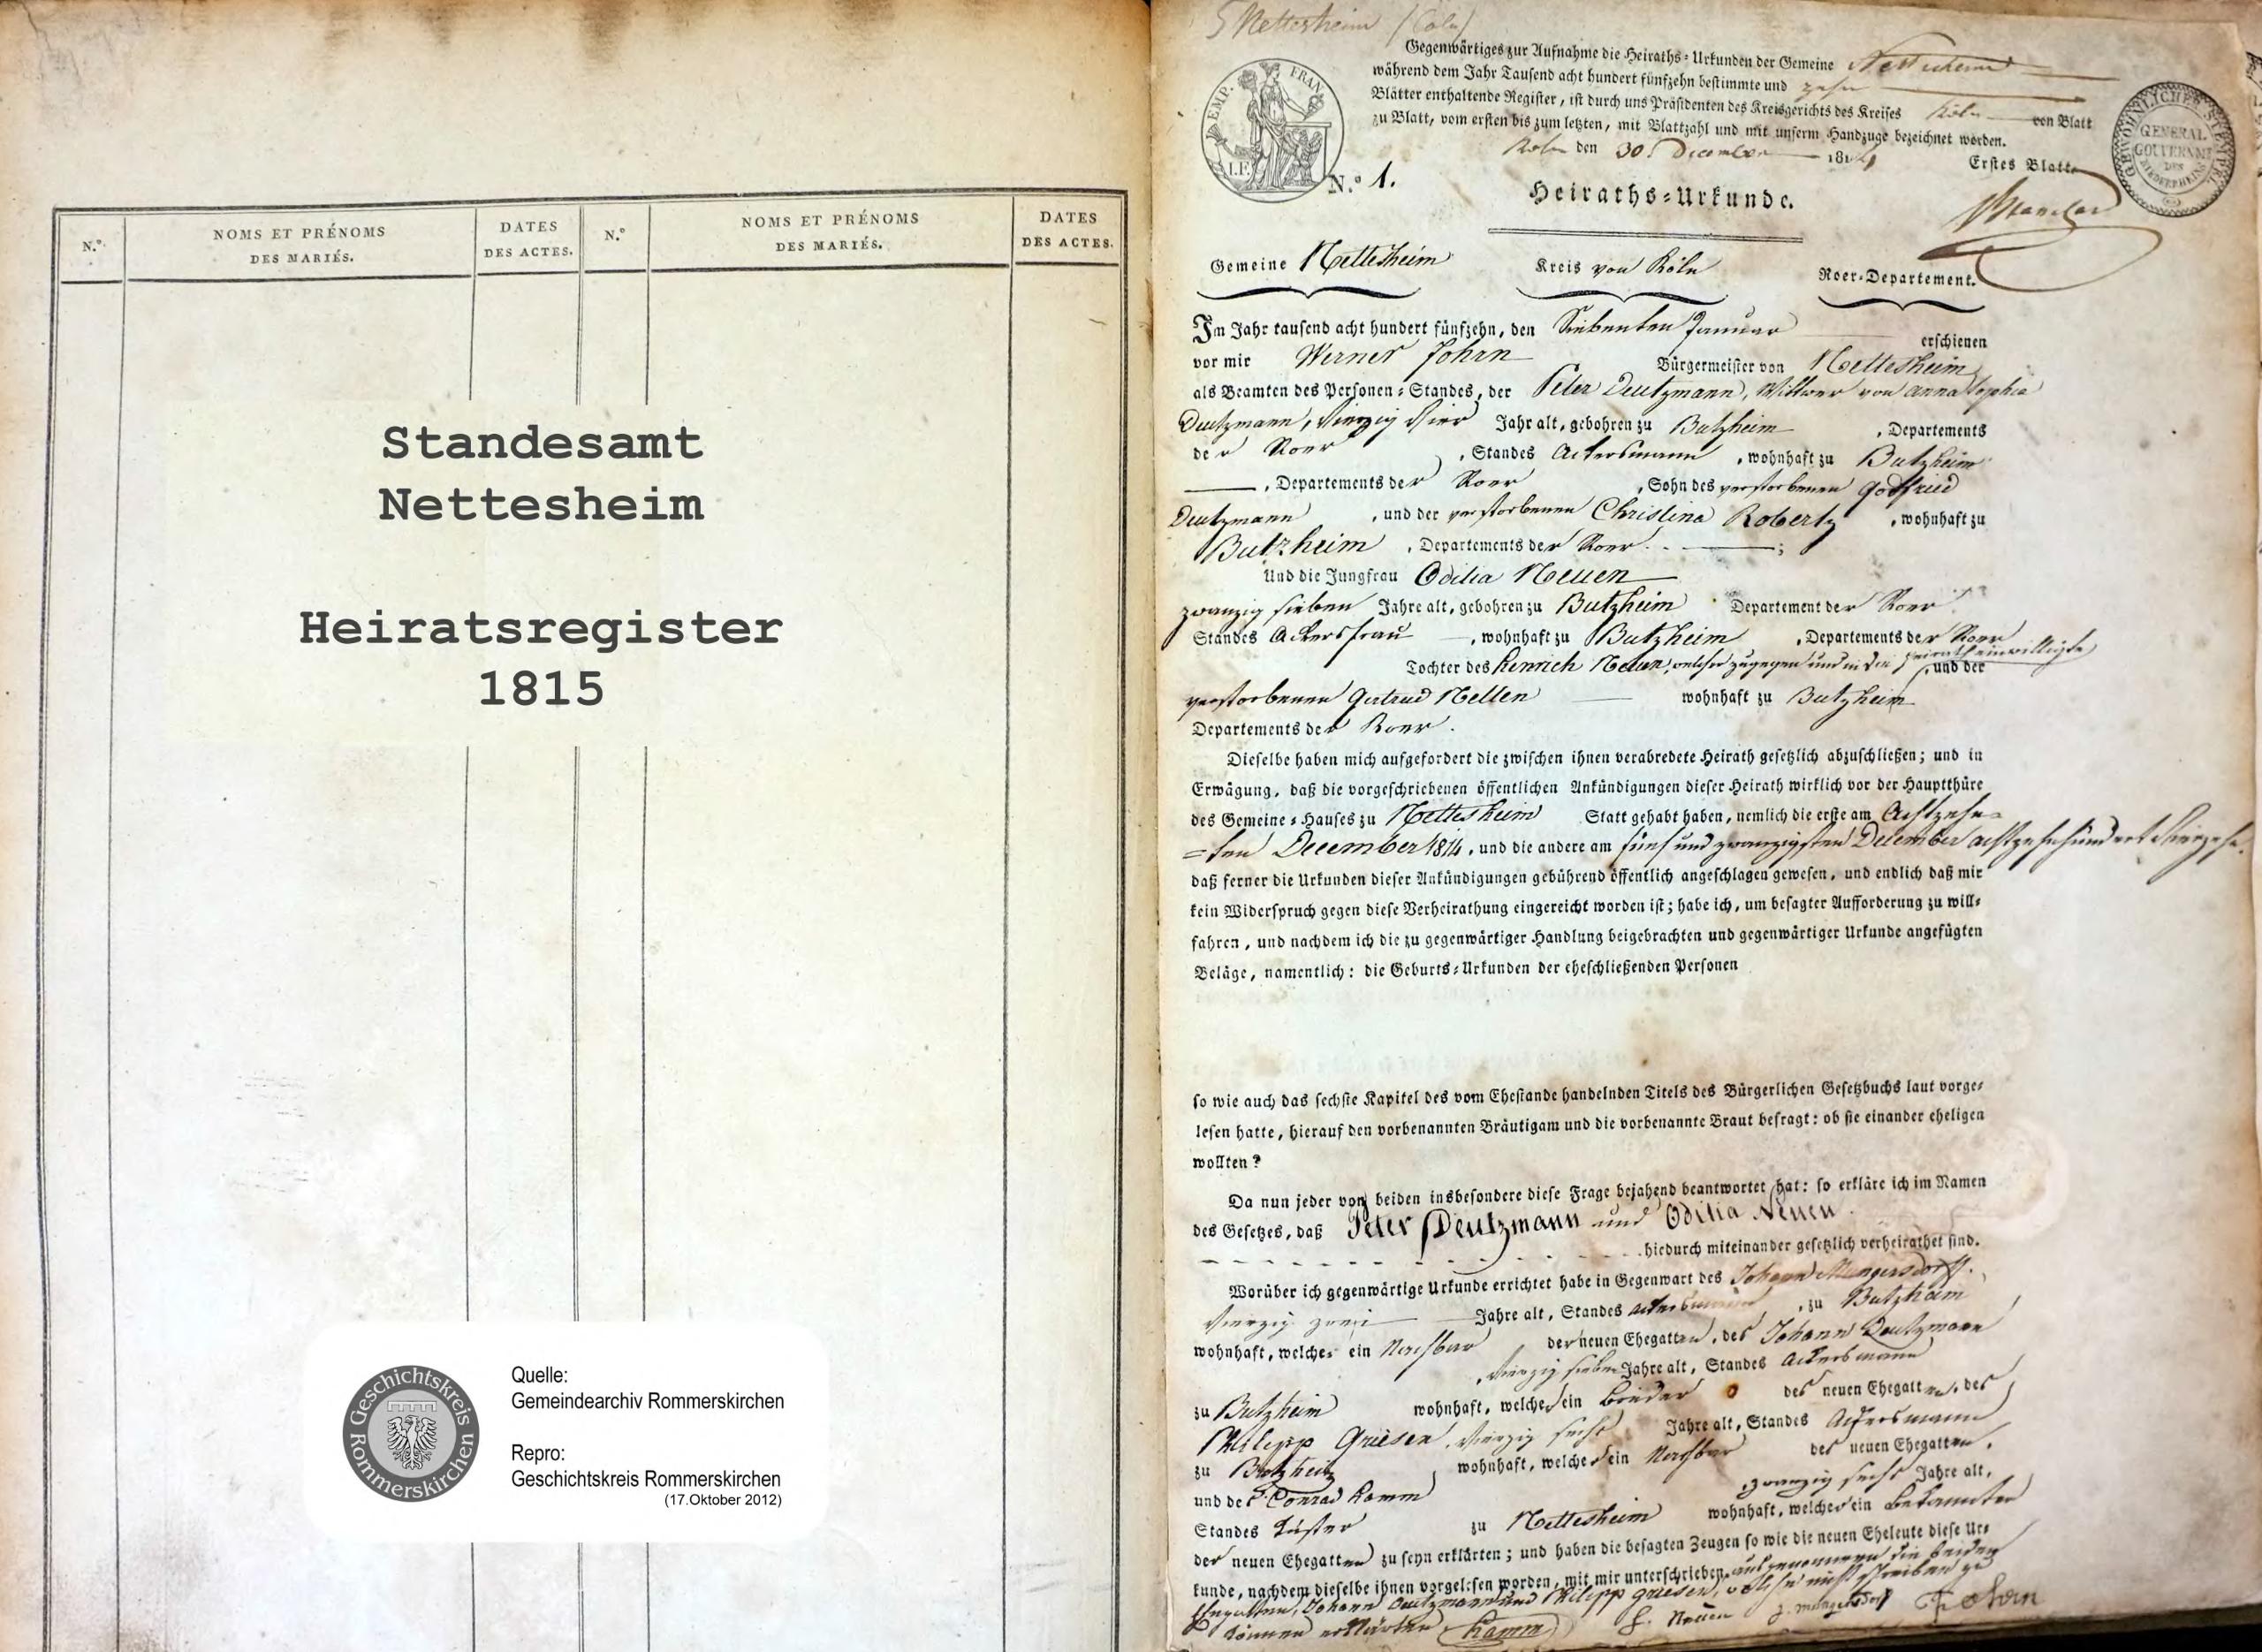 N.º
NOMS ET PRÉNOMS
DES MARIÉS.
DATES
DES ACTES.
N.º
NOMS ET PRÉNOMS
DES MARIÉS.
DATES
DES ACTES.
Standesamt
Nettesheim
Heiratsregister
1815
Geschichtskreis Rommerskirchen
Quelle:
Gemeindearchiv Rommerskirchen
Repro:
Geschichtskreis Rommerskirchen
(17.Oktober 2012)
Nettesheim (Cöln)
EMP. FRAN.
Gegenwärtiges zur Aufnahme die Heiraths-Urkunden der Gemeine Nettesheim
während dem Jahr Tausend acht hundert fünfzehn bestimmte und zehn
Blätter enthaltende Register, ist durch uns Präsidenten des Kreisgerichts des Kreises Köln von Blatt
zu Blatt, vom ersten bis zum letzten, mit Blattzahl und mit unserm Handzuge bezeichnet worden.
Köln den 30. December 1814
Erstes Blatt
GEWÖHNLICHER STEMPEL
GENERAL
GOUVERNMT
DES
NIEDERRHEINS
N.º 1.
Heiraths-Urkunde.
Gemeine Nettesheim Kreis von Köln Roer-Departement.
Im Jahr tausend acht hundert fünfzehn, den Siebenten Januar erschienen
vor mir Werner Johrn Bürgermeister von Nettesheim
als Beamten des Personen-Standes, der Peter Deutzmann, Wittwer von Anna Sophia
Deutzmann, vierzig vier Jahr alt, gebohren zu Butzheim, Departements
der Roer, Standes Ackersmann, wohnhaft zu Butzheim
, Departements der Roer, Sohn des verstorbenen Godfried
Deutzmann, und der verstorbenen Christina Robertz, wohnhaft zu
Butzheim, Departements der Roer. ;
Und die Jungfrau Odilia Neuen
zwanzig sieben Jahre alt, gebohren zu Butzheim Departement der Roer
Standes Ackersfrau, wohnhaft zu Butzheim, Departements der Roer
Tochter des Henrich Neuen, welcher zugegen und in die Heirath einwilligte, und der
verstorbenen Gertrud Nellen wohnhaft zu Butzheim
Departements der Roer.
Dieselbe haben mich aufgefordert die zwischen ihnen verabredete Heirath gesetzlich abzuschließen; und in
Erwägung, daß die vorgeschriebenen öffentlichen Ankündigungen dieser Heirath wirklich vor der Hauptthüre
des Gemeine-Hauses zu Nettesheim Statt gehabt haben, nemlich die erste am Achtzehn=
=ten December 1814, und die andere am fünf und zwanzigsten December achtzehnhundert vierzehn.
daß ferner die Urkunden dieser Ankündigungen gebührend öffentlich angeschlagen gewesen, und endlich daß mir
kein Widerspruch gegen diese Verheirathung eingereicht worden ist; habe ich, um besagter Aufforderung zu will-
fahren, und nachdem ich die zu gegenwärtiger Handlung beigebrachten und gegenwärtiger Urkunde angefügten
Beläge, namentlich: die Geburts-Urkunden der eheschließenden Personen
so wie auch das sechste Kapitel des vom Ehestande handelnden Titels des Bürgerlichen Gesetzbuchs laut vorge-
lesen hatte, hierauf den vorbenannten Bräutigam und die vorbenannte Braut befragt: ob sie einander eheligen
wollten?
Da nun jeder von beiden insbesondere diese Frage bejahend beantwortet hat: so erkläre ich im Namen
des Gesetzes, daß Peter Deutzmann und Odilia Neuen
hiedurch miteinander gesetzlich verheirathet sind.
Worüber ich gegenwärtige Urkunde errichtet habe in Gegenwart des Johann Müngersdorff.
vierzig zwei Jahre alt, Standes Ackersmann, zu Butzheim
wohnhaft, welcher ein Nachbar der neuen Ehegatten, des Johann Deutzmann
, vierzig sieben Jahre alt, Standes Ackersmann
zu Butzheim wohnhaft, welcher ein Bruder des neuen Ehegatten, des
Philipp Griesen, vierzig sechs Jahre alt, Standes Ackersmann
zu Butzheim, wohnhaft, welcher ein Nachbar der neuen Ehegatten,
und des Conrad Kamm, zwanzig sechs Jahre alt,
Standes Küster zu Nettesheim wohnhaft, welcher ein Bekannter
der neuen Ehegatten zu seyn erklärten; und haben die besagten Zeugen so wie die neuen Eheleute diese Ur-
kunde, nachdem dieselbe ihnen vorgelesen worden, mit mir unterschrieben, ausgenommen die beiden
Ehegatten, Johann Deutzmann und Philipp Griesen, welche nicht schreiben zu
können erklärten Kamm H. Neuen J. Müngersdorf Johrn